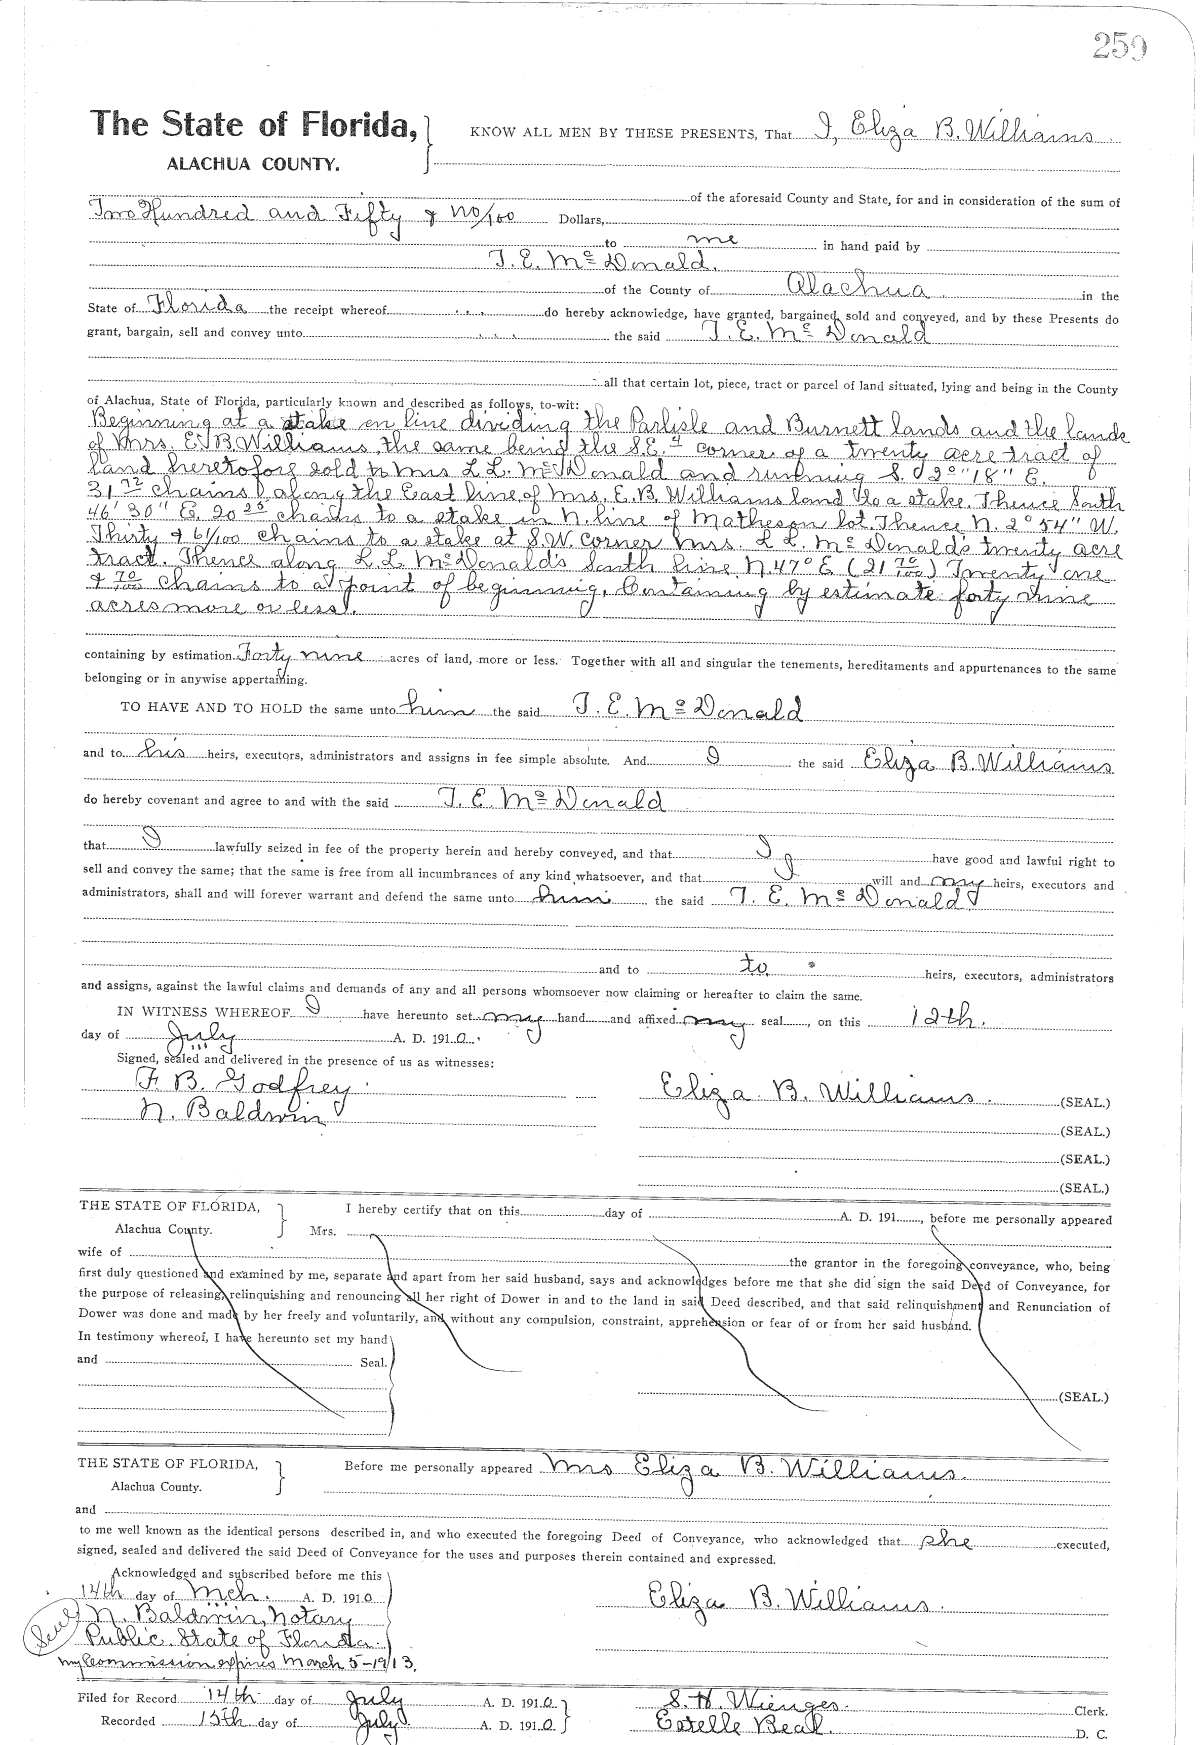 259
The State of Florida, KNOW ALL MEN BY THESE PRESENTS, That I, Eliza B. Williams
ALACHUA COUNTY.
of the aforesaid County and State, for and in consideration of the sum of
Two Hundred and Fifty & no/100 Dollars,
to me in hand paid by
T. E. McDonald.
of the County of Alachua in the
State of Florida the receipt whereof do hereby acknowledge, have granted, bargained, sold and conveyed, and by these Presents do
grant, bargain, sell and convey unto the said T. E. McDonald
all that certain lot, piece, tract or parcel of land situated, lying and being in the County
of Alachua, State of Florida, particularly known and described as follows, to-wit:
Beginning at a stake on line dividing the Parlisle and Burnett lands and the lands
of Mrs. E. B Williams, the same being the S.E. 4 corner of a twenty acre tract of
land heretofore sold to Mrs L. L. McDonald and running S. 2° 18" E.
31 72 chains along the East line of Mrs. E. B. Williams land to a stake. Thence South
46' 30" E. 20 25 chains to a stake in N. line of Matheson lot. Thence N. 2° 54" W.
Thirty & 61/100 chains to a stake at S.W. corner Mrs. L L. McDonald's twenty acre
tract. Thence along L. L. McDonald's South line N 47° E (21 70/100) Twenty one
& 70/100 chains to a point of beginning. Containing by estimate forty nine
acres more or less.
containing by estimation Forty nine acres of land, more or less. Together with all and singular the tenements, hereditaments and appurtenances to the same
belonging or in anywise appertaining.
TO HAVE AND TO HOLD the same unto him the said T. E. McDonald
and to his heirs, executors, administrators and assigns in fee simple absolute. And I the said Eliza B. Williams
do hereby covenant and agree to and with the said T. E. McDonald
that I lawfully seized in fee of the property herein and hereby conveyed, and that I have good and lawful right to
sell and convey the same; that the same is free from all incumbrances of any kind whatsoever, and that I will and my heirs, executors and
administrators, shall and will forever warrant and defend the same unto him the said T. E. McDonald
and to to heirs, executors, administrators
and assigns, against the lawful claims and demands of any and all persons whomsoever now claiming or hereafter to claim the same.
IN WITNESS WHEREOF I have hereunto set my hand and affixed my seal, on this 12th.
day of July A. D. 1910.
Signed, sealed and delivered in the presence of us as witnesses:
F. B. Godfrey Eliza B. Williams. (SEAL.)
N. Baldwin
(SEAL.)
(SEAL.)
(SEAL.)
THE STATE OF FLORIDA, I hereby certify that on this day of A. D. 191, before me personally appeared
Alachua County. Mrs.
wife of the grantor in the foregoing conveyance, who, being
first duly questioned and examined by me, separate and apart from her said husband, says and acknowledges before me that she did sign the said Deed of Conveyance, for
the purpose of releasing, relinquishing and renouncing all her right of Dower in and to the land in said Deed described, and that said relinquishment and Renunciation of
Dower was done and made by her freely and voluntarily, and without any compulsion, constraint, apprehension or fear of or from her said husband.
In testimony whereof, I have hereunto set my hand
and Seal.
(SEAL.)
THE STATE OF FLORIDA, Before me personally appeared Mrs Eliza B. Williams.
Alachua County.
and
to me well known as the identical persons described in, and who executed the foregoing Deed of Conveyance, who acknowledged that she executed,
signed, sealed and delivered the said Deed of Conveyance for the uses and purposes therein contained and expressed.
Acknowledged and subscribed before me this
14th day of Mch. A. D. 1910 Eliza B. Williams.
Seal N. Baldwin, Notary
Public. State of Florida.
My Commission expires March 5-1913.
Filed for Record 14th day of July A. D. 1910 S. H. Wienges. Clerk.
Recorded 15th day of July A. D. 1910 Estelle Beal. D. C.